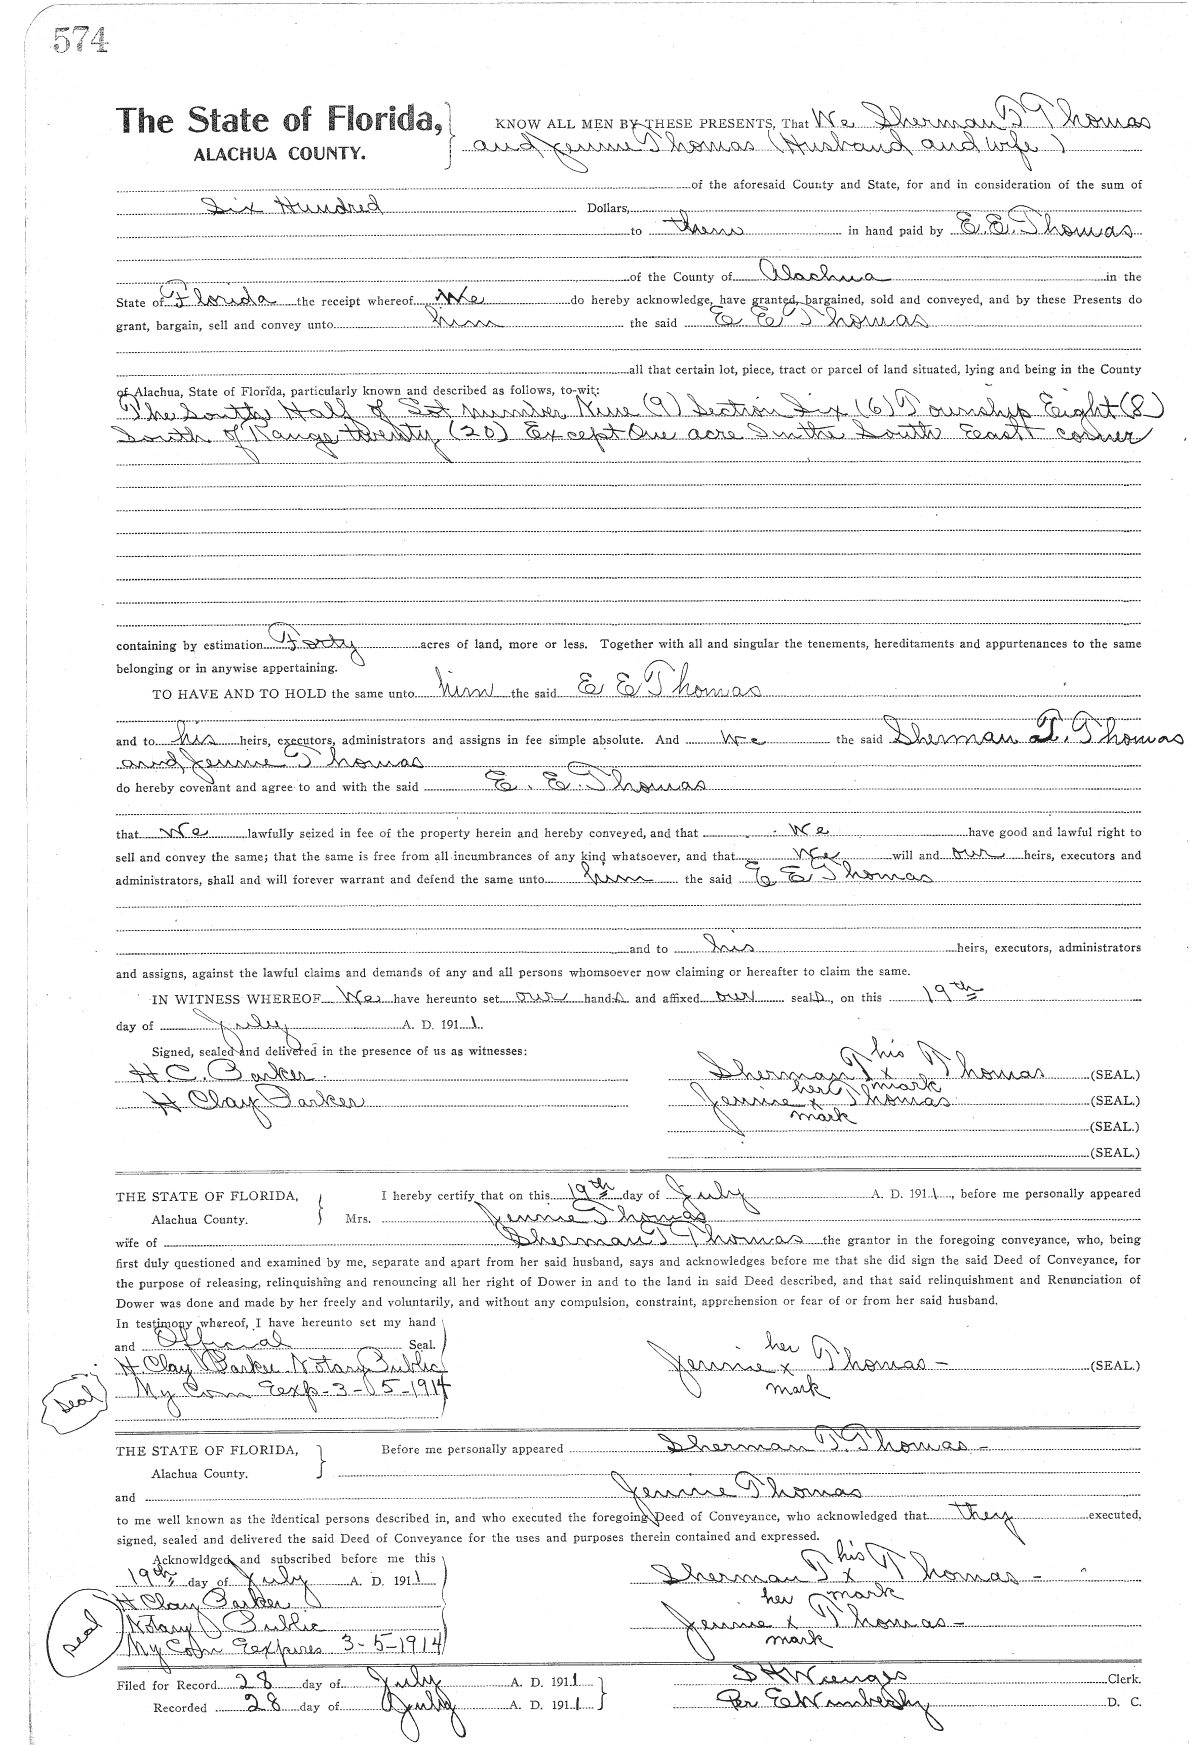 574
The State of Florida, KNOW ALL MEN BY THESE PRESENTS, That We Sherman T Thomas
ALACHUA COUNTY. and Jennie Thomas (Husband and wife)
of the aforesaid County and State, for and in consideration of the sum of
Six Hundred Dollars,
to them in hand paid by E. E. Thomas
of the County of Alachua in the
State of Florida the receipt whereof We do hereby acknowledge, have granted, bargained, sold and conveyed, and by these Presents do
grant, bargain, sell and convey unto him the said E E Thomas
all that certain lot, piece, tract or parcel of land situated, lying and being in the County
of Alachua, State of Florida, particularly known and described as follows, to-wit:
The South Half of Lot number Nine (9) Section Six (6) Township Eight (8)
South of Range twenty (20) Except One acre In the South East corner
containing by estimation Forty acres of land, more or less. Together with all and singular the tenements, hereditaments and appurtenances to the same
belonging or in anywise appertaining.
TO HAVE AND TO HOLD the same unto him the said E E Thomas
and to his heirs, executors, administrators and assigns in fee simple absolute. And We the said Sherman T. Thomas
and Jennie Thomas
do hereby covenant and agree to and with the said E. E. Thomas
that We lawfully seized in fee of the property herein and hereby conveyed, and that We have good and lawful right to
sell and convey the same; that the same is free from all incumbrances of any kind whatsoever, and that We will and our heirs, executors and
administrators, shall and will forever warrant and defend the same unto him the said E E Thomas
and to his heirs, executors, administrators
and assigns, against the lawful claims and demands of any and all persons whomsoever now claiming or hereafter to claim the same.
IN WITNESS WHEREOF We have hereunto set our hands and affixed our seals, on this 19th
day of July A. D. 1911.
Signed, sealed and delivered in the presence of us as witnesses:
H C. Parker Sherman T his x mark Thomas (SEAL.)
H Clay Parker Jennie her x mark Thomas (SEAL.)
(SEAL.)
(SEAL.)
THE STATE OF FLORIDA, I hereby certify that on this 19th day of July A. D. 1911, before me personally appeared
Alachua County. Mrs. Jennie Thomas
wife of Sherman T Thomas the grantor in the foregoing conveyance, who, being
first duly questioned and examined by me, separate and apart from her said husband, says and acknowledges before me that she did sign the said Deed of Conveyance, for
the purpose of releasing, relinquishing and renouncing all her right of Dower in and to the land in said Deed described, and that said relinquishment and Renunciation of
Dower was done and made by her freely and voluntarily, and without any compulsion, constraint, apprehension or fear of or from her said husband.
In testimony whereof, I have hereunto set my hand
and Official Seal.
H. Clay Parker Notary Public Jennie her x mark Thomas - (SEAL)
seal My Com Exp-3-5-1914
THE STATE OF FLORIDA, Before me personally appeared Sherman T. Thomas -
Alachua County.
and Jennie Thomas
to me well known as the identical persons described in, and who executed the foregoing Deed of Conveyance, who acknowledged that they executed,
signed, sealed and delivered the said Deed of Conveyance for the uses and purposes therein contained and expressed.
Acknowldged and subscribed before me this
19th day of July A. D. 1911 Sherman T his x mark Thomas -
H Clay Parker
seal Notary Public Jennie her x mark Thomas -
My Com Eexpires 3-5-1914
Filed for Record 28 day of July A. D. 1911 S H Wienges Clerk.
Recorded 28 day of July A. D. 1911 Per E Wimberly D. C.